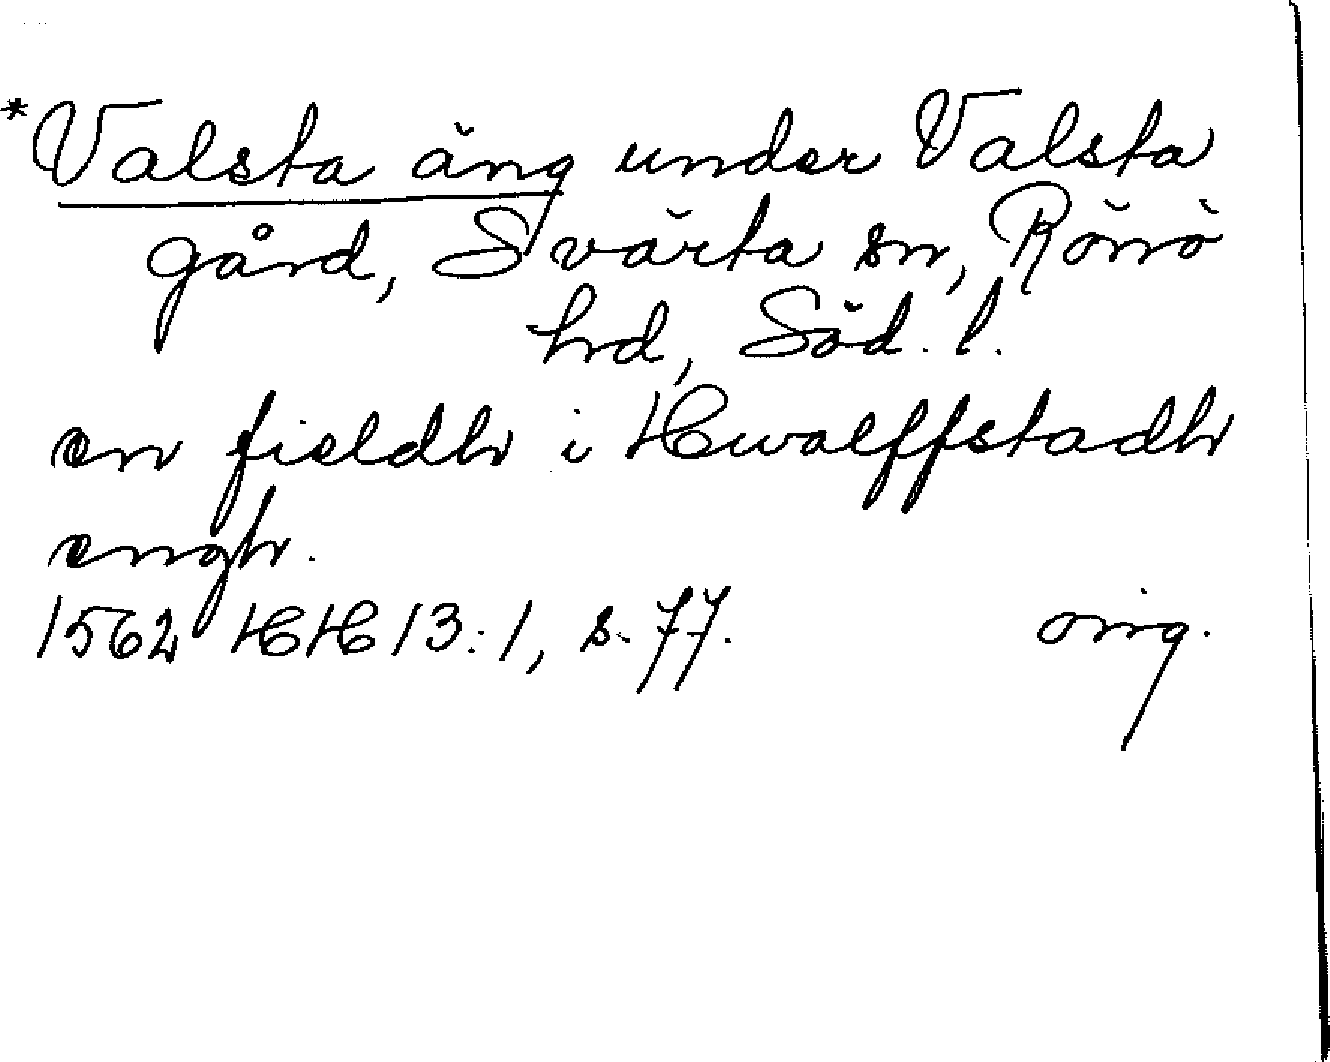 *Valsta äng under Valsta
gård, Svärta sn, Rönö
hrd, Söd. l.
en fieldh i Hwalffstadh
engh.
1562 HH 13:1, s. 77. orig.